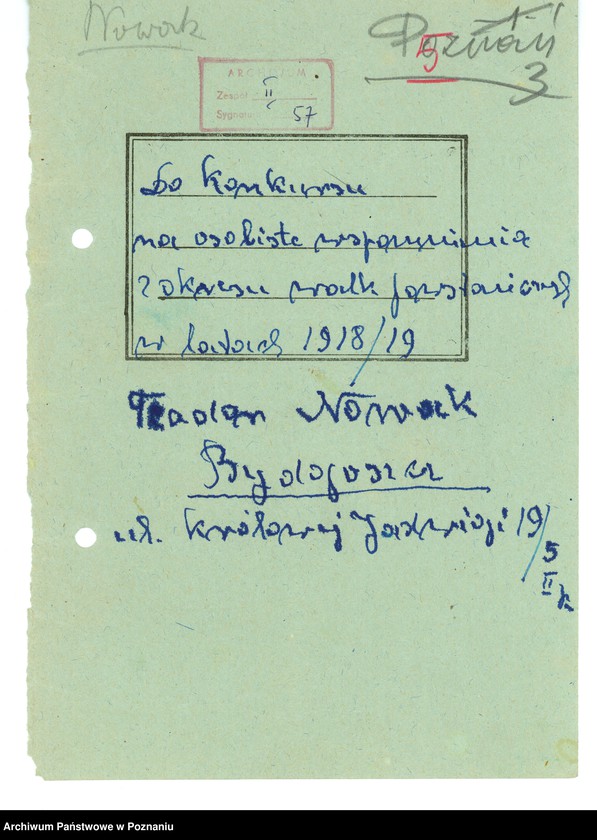 Nowak
Poznań
3
5
ARCHIWUM
Zespół II
Sygnatura 57
Do konkursu
na osobiste wspomnienia
z okresu walk powstańczych
w latach 1918/19
Nowak
Bydgoszcz
ul. Królowej Jadwigi 19/5
II p.
Archiwum Państwowe w Poznaniu